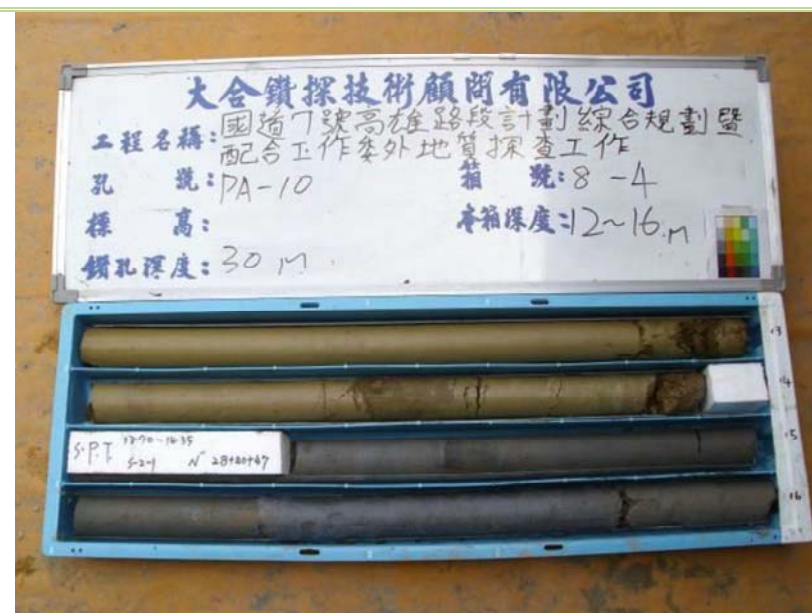 大合鑽探技術顧問有限公司
工程名稱:國道7號高雄路段計劃綜合規劃暨
配合工作委外地質探查工作
孔號:PA-10 箱號:8-4
標高: 本箱深度:12~16.m
鑽孔深度:30 M
13
14
S.P.T. 13.90-14.35
N 28+40+47
15
16